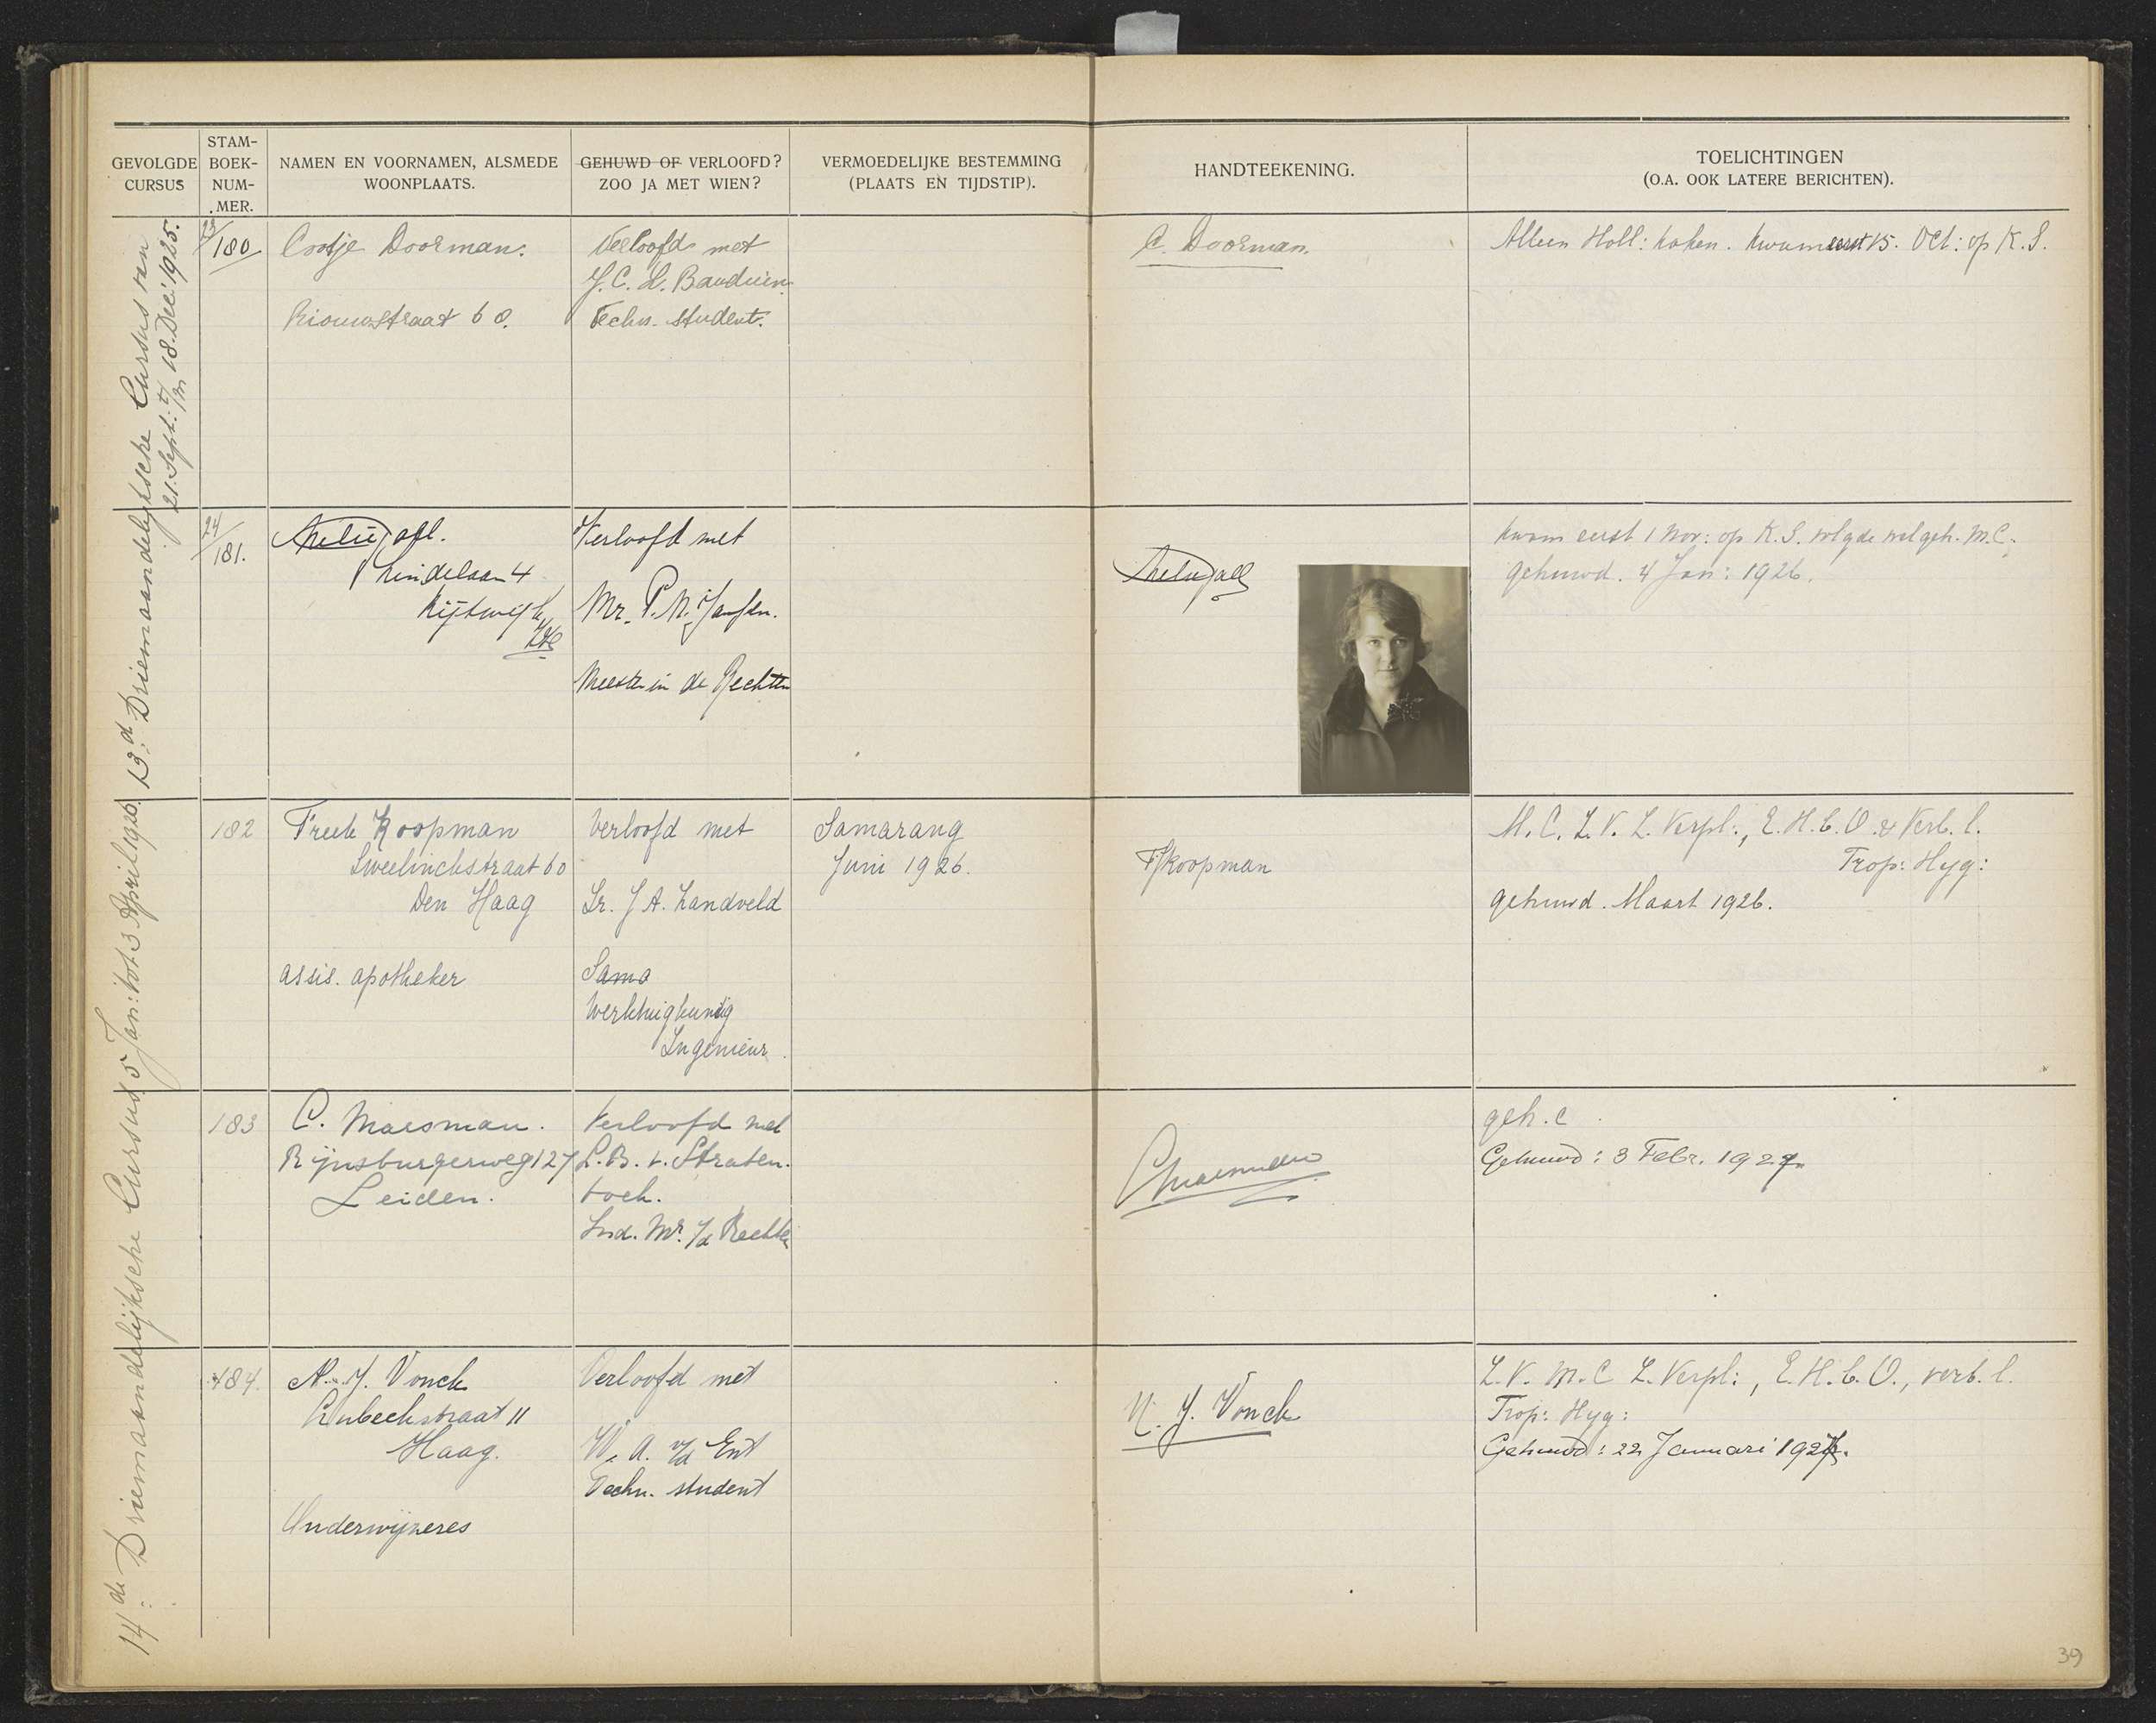 GEVOLGDE CURSUS
STAM-BOEK-NUM-MER.
NAMEN EN VOORNAMEN, ALSMEDE WOONPLAATS.
GEHUWD OF VERLOOFD? ZOO JA MET WIEN?
VERMOEDELIJKE BESTEMMING (PLAATS EN TIJDSTIP).
HANDTEEKENING.
TOELICHTINGEN (O.A. OOK LATERE BERICHTEN).
13d Driemaandelijksche Cursus van
21. Sept: t/m 18. Dec: 1925.
23/180
Cootje Doorman.
Riouwstraat 60.
Verloofd met
J. C. L. Bauduin
Techn. student.
C. Doorman.
Alleen Holl: koken. kwam eerst 15. Oct: op K. S.
24/181.
Lindelaan 4
Rijswijk
ZH
Verloofd met
Mr. P. N. Jansen.
Meester in de Rechten
kwam eerst 1 Nov: op K. S. volgde wel geh. M.C.
gehuwd. 4 Jan: 1926.
14de Driemaandelijksche Cursus 5 Jan: tot 3 April 1926.
182
Freek Koopman
Sweelinckstraat 60
Den Haag
assis. apotheker
Verloofd met
Ir. J A. Landveld
Werktuigkundig
Ingenieur.
Samarang
Juni 1926.
FKoopman
M. C. L. V. L. Verpl:, E. H. b. O. & Verb. l.
Trop: Hyg:
gehuwd. Maart 1926.
183
C. Maesman.
Rijnsburgerweg 127
Leiden.
Verloofd met
L. B. v. Straten.
toch.
Ind. Mr. i/d Rechte
CMaesman
geh. c.
Gehuwd: 3 Febr. 1927.
184.
N. J. Vonck
Lubeckstraat 11
Haag.
Onderwijzeres
Verloofd met
W. A. v/d Ent
Techn. student
N. J. Vonck
L. V. M. C L. Verpl:, E. H. b. O., verb. l.
Trop: Hyg:
Gehuwd: 22 Januari 1927.
39